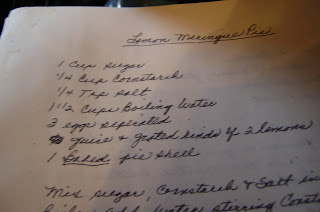 Lemon Meringue Pie
1 Cup Sugar
1/4 Cup Cornstarch
1/4 Tsp Salt
1 1/2 Cups Boiling Water
3 eggs seperated
Juice & grated rinds of 2 lemons
1 Baked pie shell
Mix sugar, Cornstarch & Salt in
water, stirring